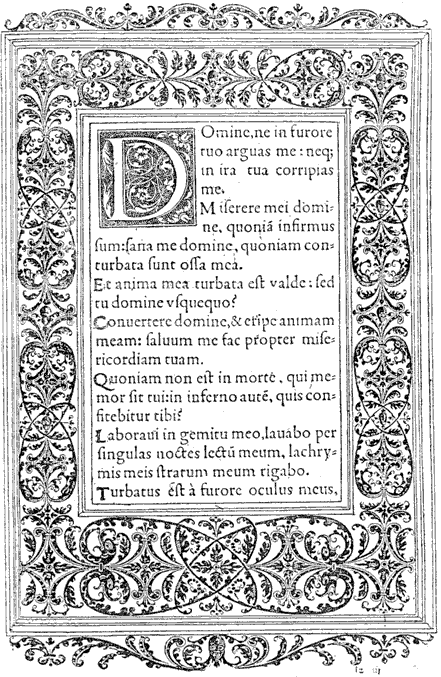 Domine, ne in furore
tuo arguas me : neq;
in ira tua corripias
me.
Miserere mei domi-
ne, quoniã infirmus
sum: sana me domine, quoniam con-
turbata sunt ossa mea.
Et anima mea turbata est valde : sed
tu domine vsquequo?
Conuertere domine, & eripe animam
meam: saluum me fac propter mise-
ricordiam tuam.
Quoniam non est in morte, qui me-
mor sit tui: in inferno autẽ, quis con-
fitebitur tibi?
Laboraui in gemitu meo, lauabo per
singulas noctes lectũ meum, lachry-
mis meis stratum meum rigabo.
Turbatus est à furore oculus meus,